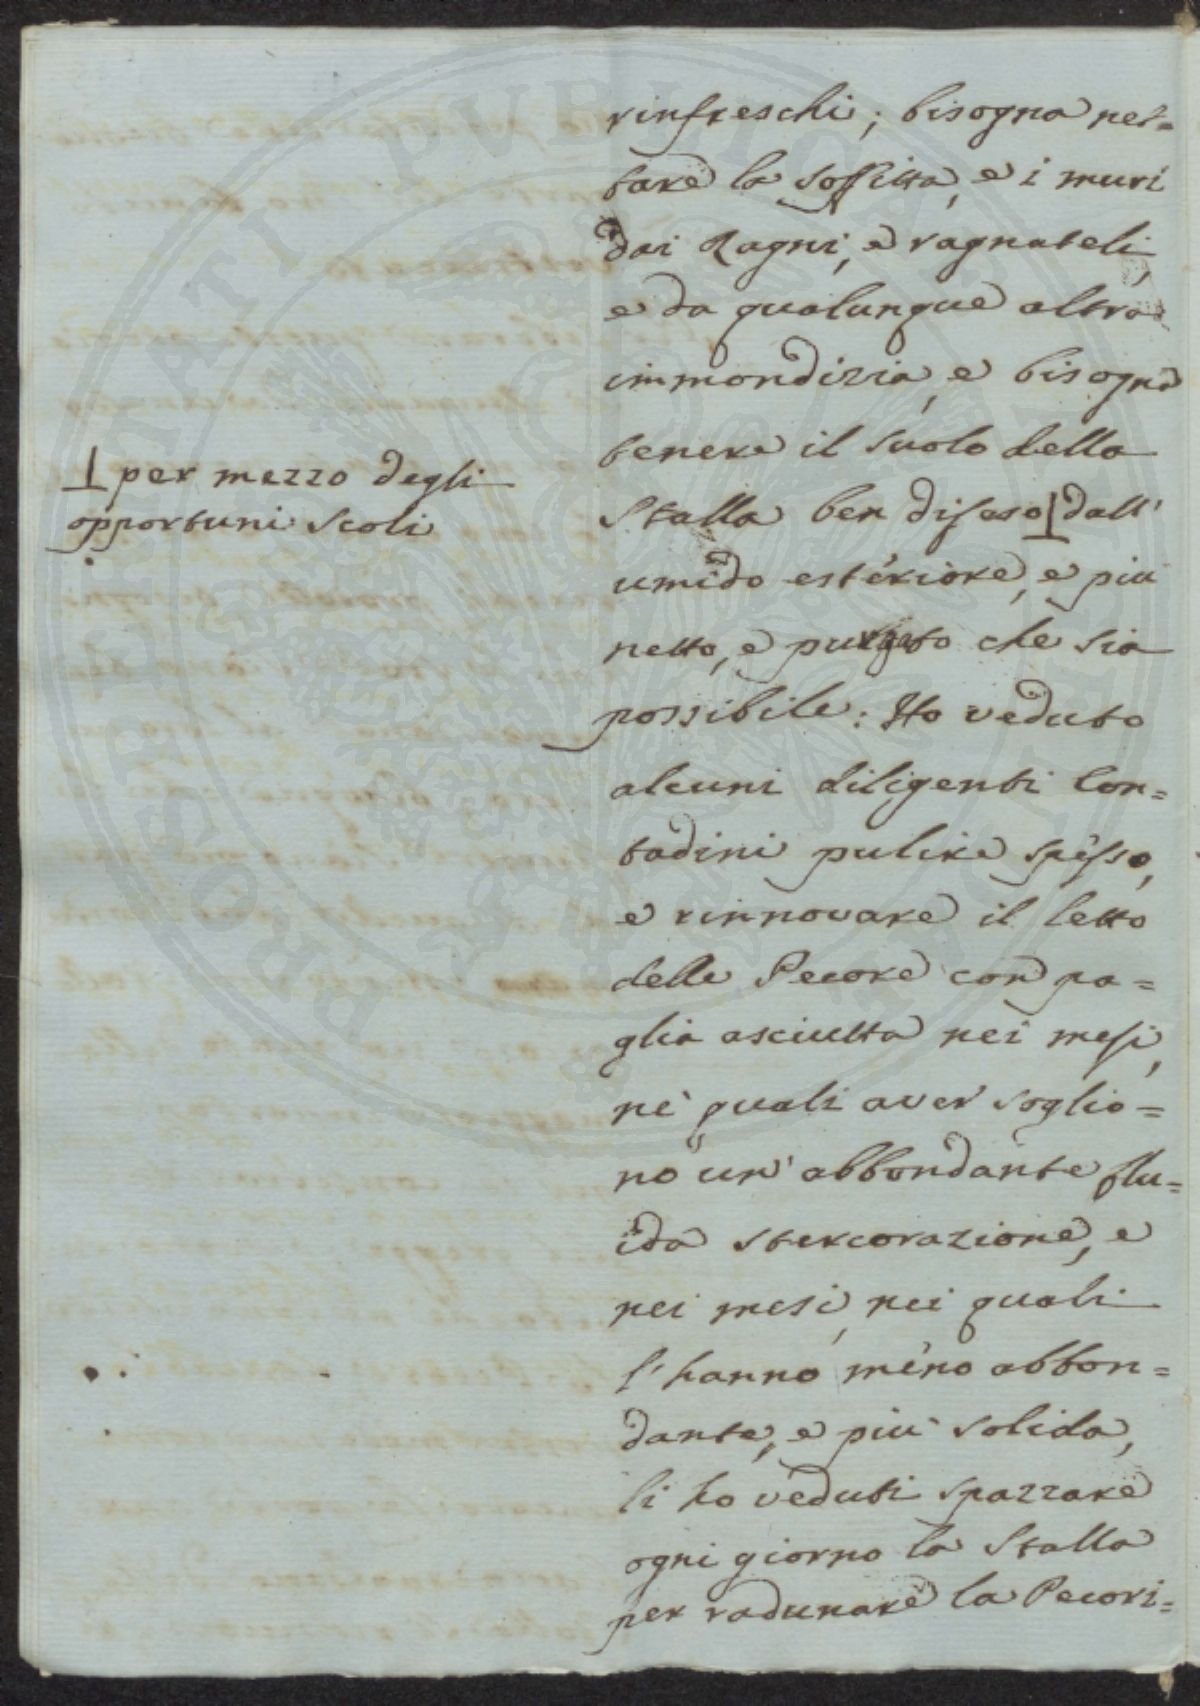 rinfreschi; bisogna net=
tare la soffitta, e i muri
dai Ragni, e ragnateli,
e da qualunque altra
immondizia, e bisogna
tenere il suolo della
Stalla ben difeso ⊥ dall'
umido esteriore, e più
netto, e purgato che sia
possibile: Ho veduto
alcuni diligenti Con=
tadini pulire spesso,
e rinnovare il letto
delle Pecore con pa=
glia asciutta nei mesi,
ne' quali aver soglio=
no un' abbondante flu=
ida stercorazione, e
nei mesi, nei quali
l'hanno meno abbon=
dante, e più solida,
li ho veduti spazzare
ogni giorno la Stalla
per radunare la Pecori=
⊥ per mezzo degli
opportuni scoli
PROSPERITATI PUBLICAE AUGENDAE